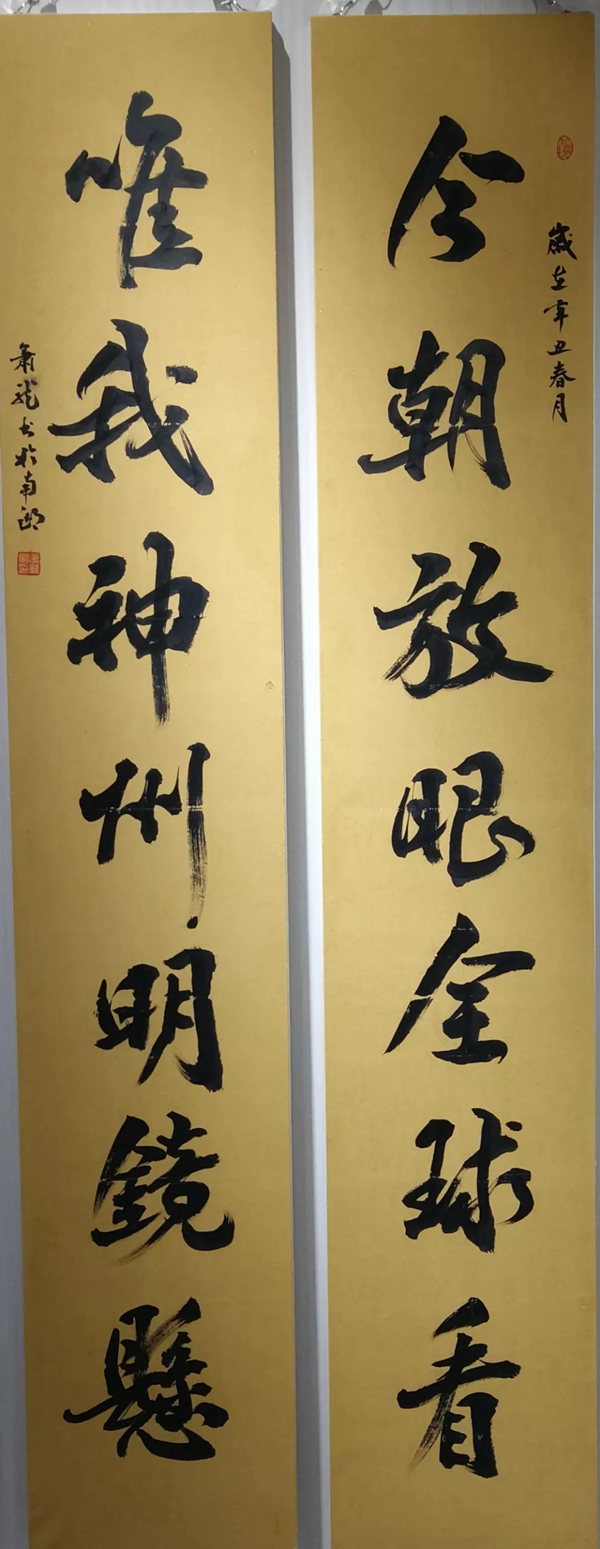 歲在辛丑春月
今朝放眼全球看
唯我神州明鏡懸